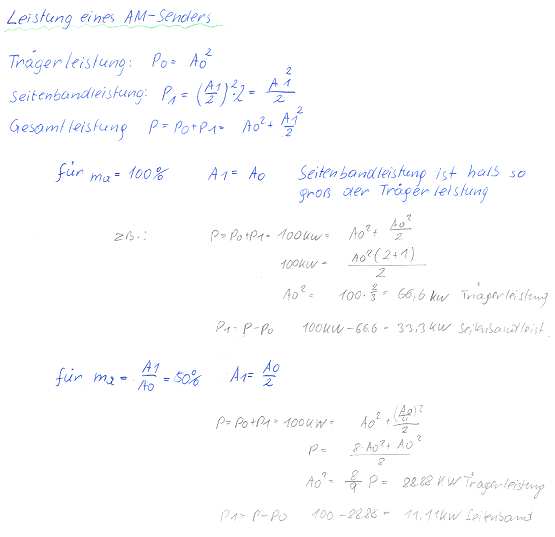 Leistung eines AM-Senders
Trägerleistung: P0 = A0²
Seitenbandleistung: P1 = (A1/2)²·2 = A1²/2
Gesamtleistung P = P0+P1 = A0² + A1²/2
für ma = 100% A1 = A0 Seitenbandleistung ist halb so
groß der Trägerleistung
zB.: P = P0+P1 = 100KW = A0² + A0²/2
100KW = A0²(2+1)/2
A0² = 100·2/3 = 66,6 KW Trägerleistung
P1 = P-P0 100KW-66.6 = 33,3KW Seitenbandleist.
für ma = A1/A0 = 50% A1 = A0/2
P = P0+P1 = 100KW = A0² + (A0/2)²/2
P = 8·A0² + A0²/8
A0² = 8/9 P = 88.88 KW Trägerleistung
P1 = P-P0 100-88.88 = 11.11KW Seitenband